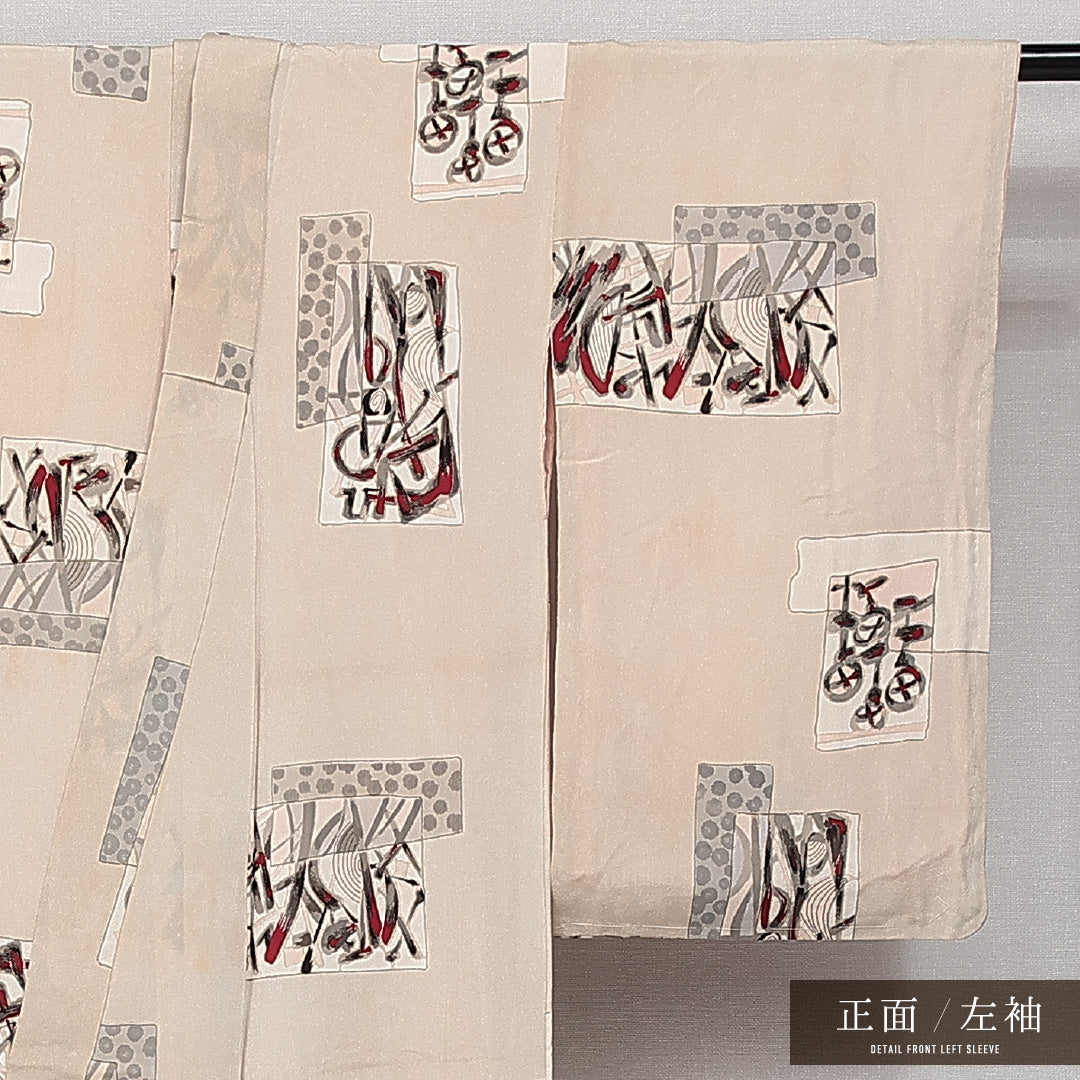 正面 / 左袖
DETAIL FRONT LEFT SLEEVE